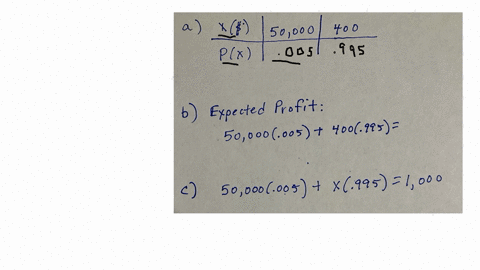 a) X($) 50,000 400
P(x) .005 .995
b) Expected Profit:
50,000(.005) + 400(.995) =
c) 50,000(.005) + X(.995) = 1,000